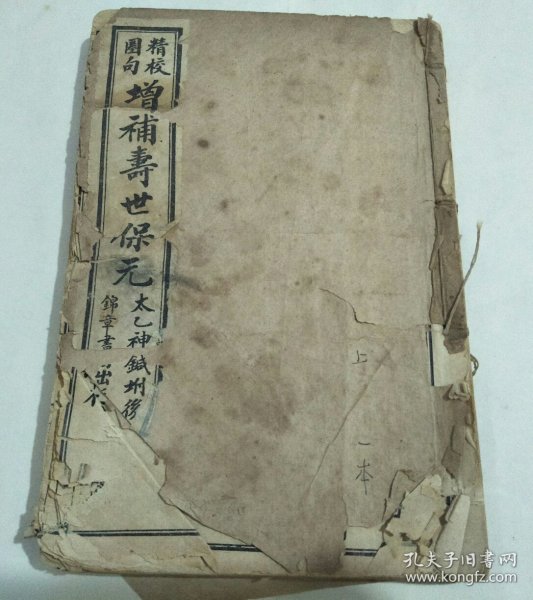 精校
圈句
增補壽世保元
太乙神鍼坿後
錦章書
上
一本
孔夫子旧书网
www.kongfz.com